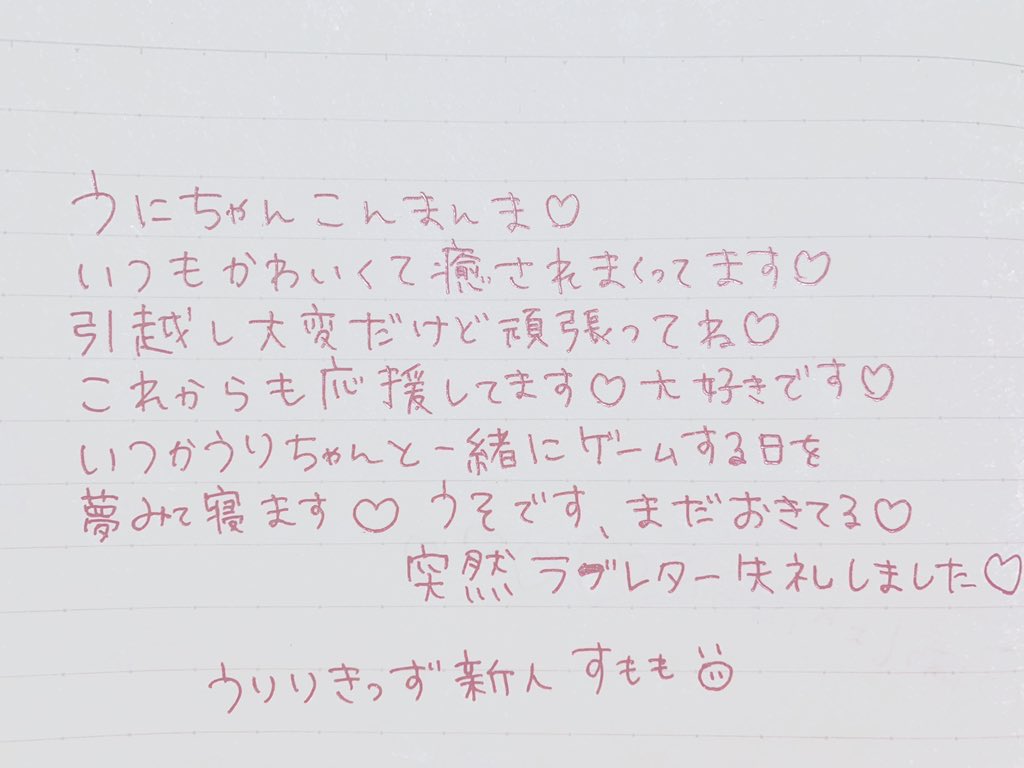 うにちゃんこんまんま♡
いつもかわいくて癒されまくってます♡
引越し大変だけど頑張ってね♡
これからも応援してます♡大好きです♡
いつかうりちゃんと一緒にゲームする日を
夢みて寝ます♡うそです、まだおきてる♡
突然ラブレター失礼しました♡
うりりきっず新人すもも